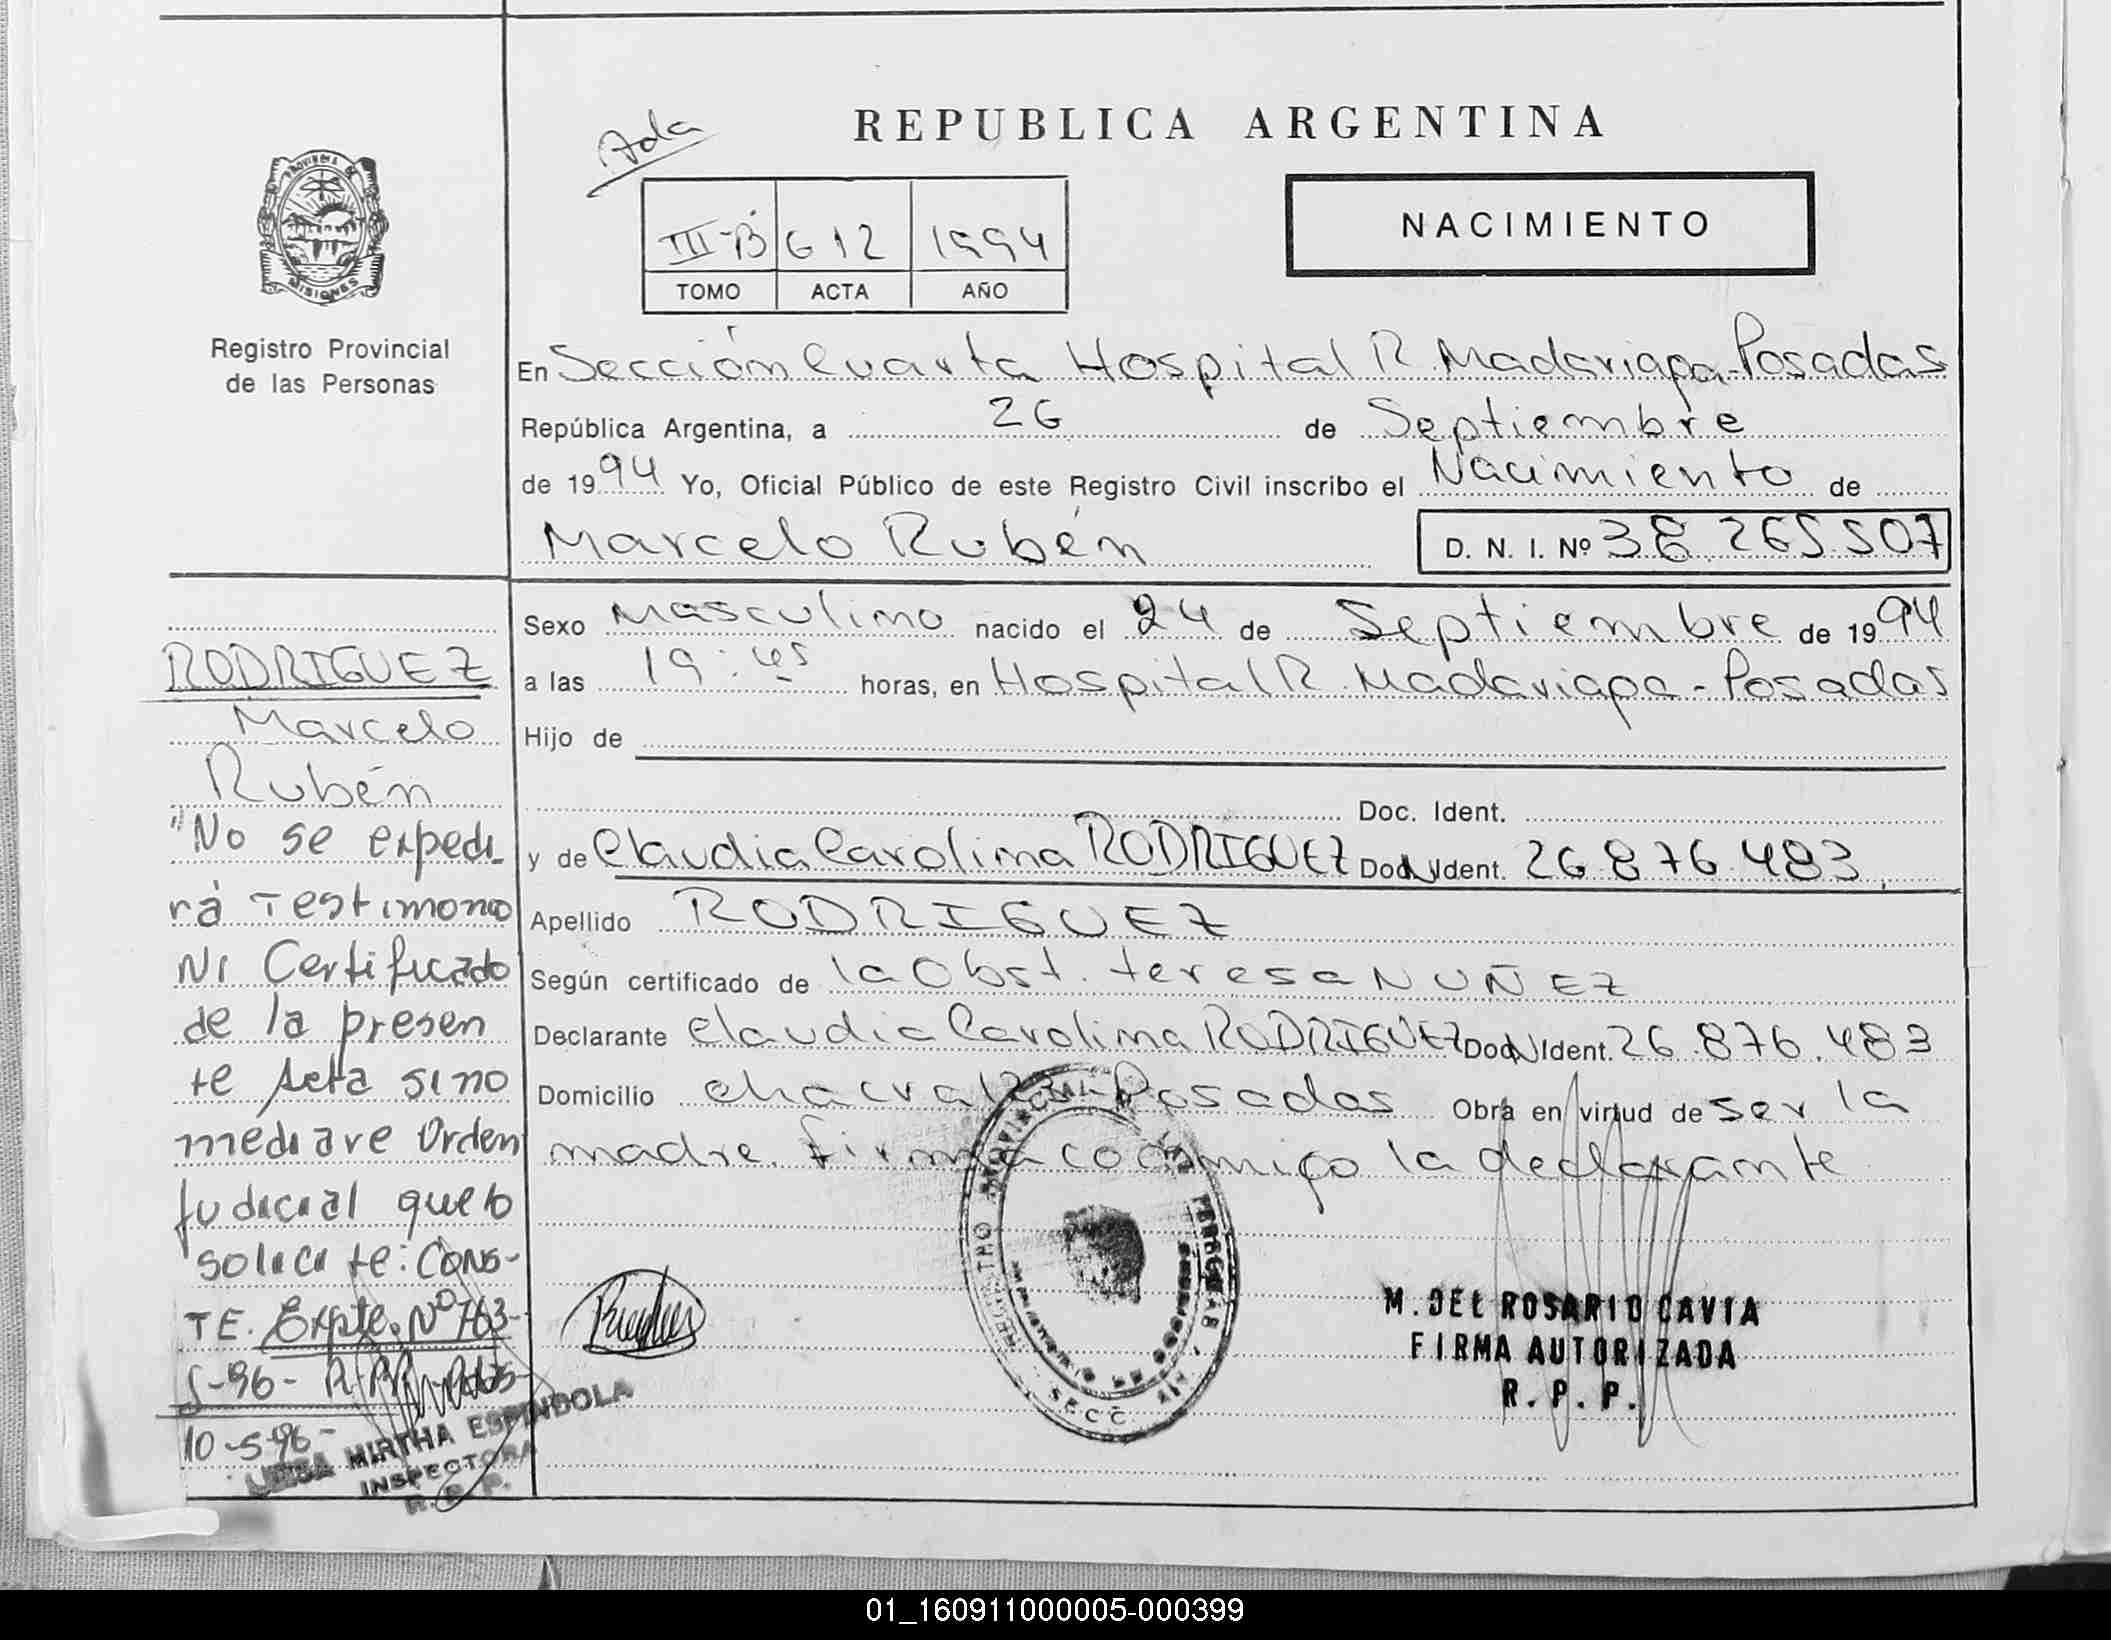 PROVINCIA DE
MISIONES
Registro Provincial
de las Personas
Ada
REPUBLICA ARGENTINA
NACIMIENTO
III-B 612 1994
TOMO ACTA AÑO
En Sección Cuarta Hospital R. Madariaga-Posadas
República Argentina, a 26 de Septiembre
de 1994 Yo, Oficial Público de este Registro Civil inscribo el Nacimiento de
Marcelo Rubén D. N. I. Nº 38.265.507
Sexo Masculino nacido el 24 de Septiembre de 1994
a las 19:45 horas, en Hospital R. Madariaga-Posadas
Hijo de
Doc. Ident.
y de Claudia Carolina RODRIGUEZ Doc. Ident. 26.876.483
Apellido RODRIGUEZ
Según certificado de la Obst. teresa NUÑEZ
Declarante Claudia Carolina RODRIGUEZ Doc. Ident. 26.876.483
Domicilio chacra Posadas Obra en virtud de ser la
madre. firma conmigo la declarante
RODRIGUEZ
Marcelo
Rubén
"No se expedi-
rá Testimonio
Ni Certificado
de la presen
te Acta sino
mediare Orden
Judicial que lo
solicite: CONS-
TE. Expte. Nº 763-
5-96- R.P.P.
10-5-96-
MIRTHA ESPINDOLA
INSPECTORA
R. P. P.
REGISTRO PROVINCIAL DE LAS PERSONAS
SECC.
M. DEL ROSARIO CAVIA
FIRMA AUTORIZADA
R. P. P.
01_160911000005-000399